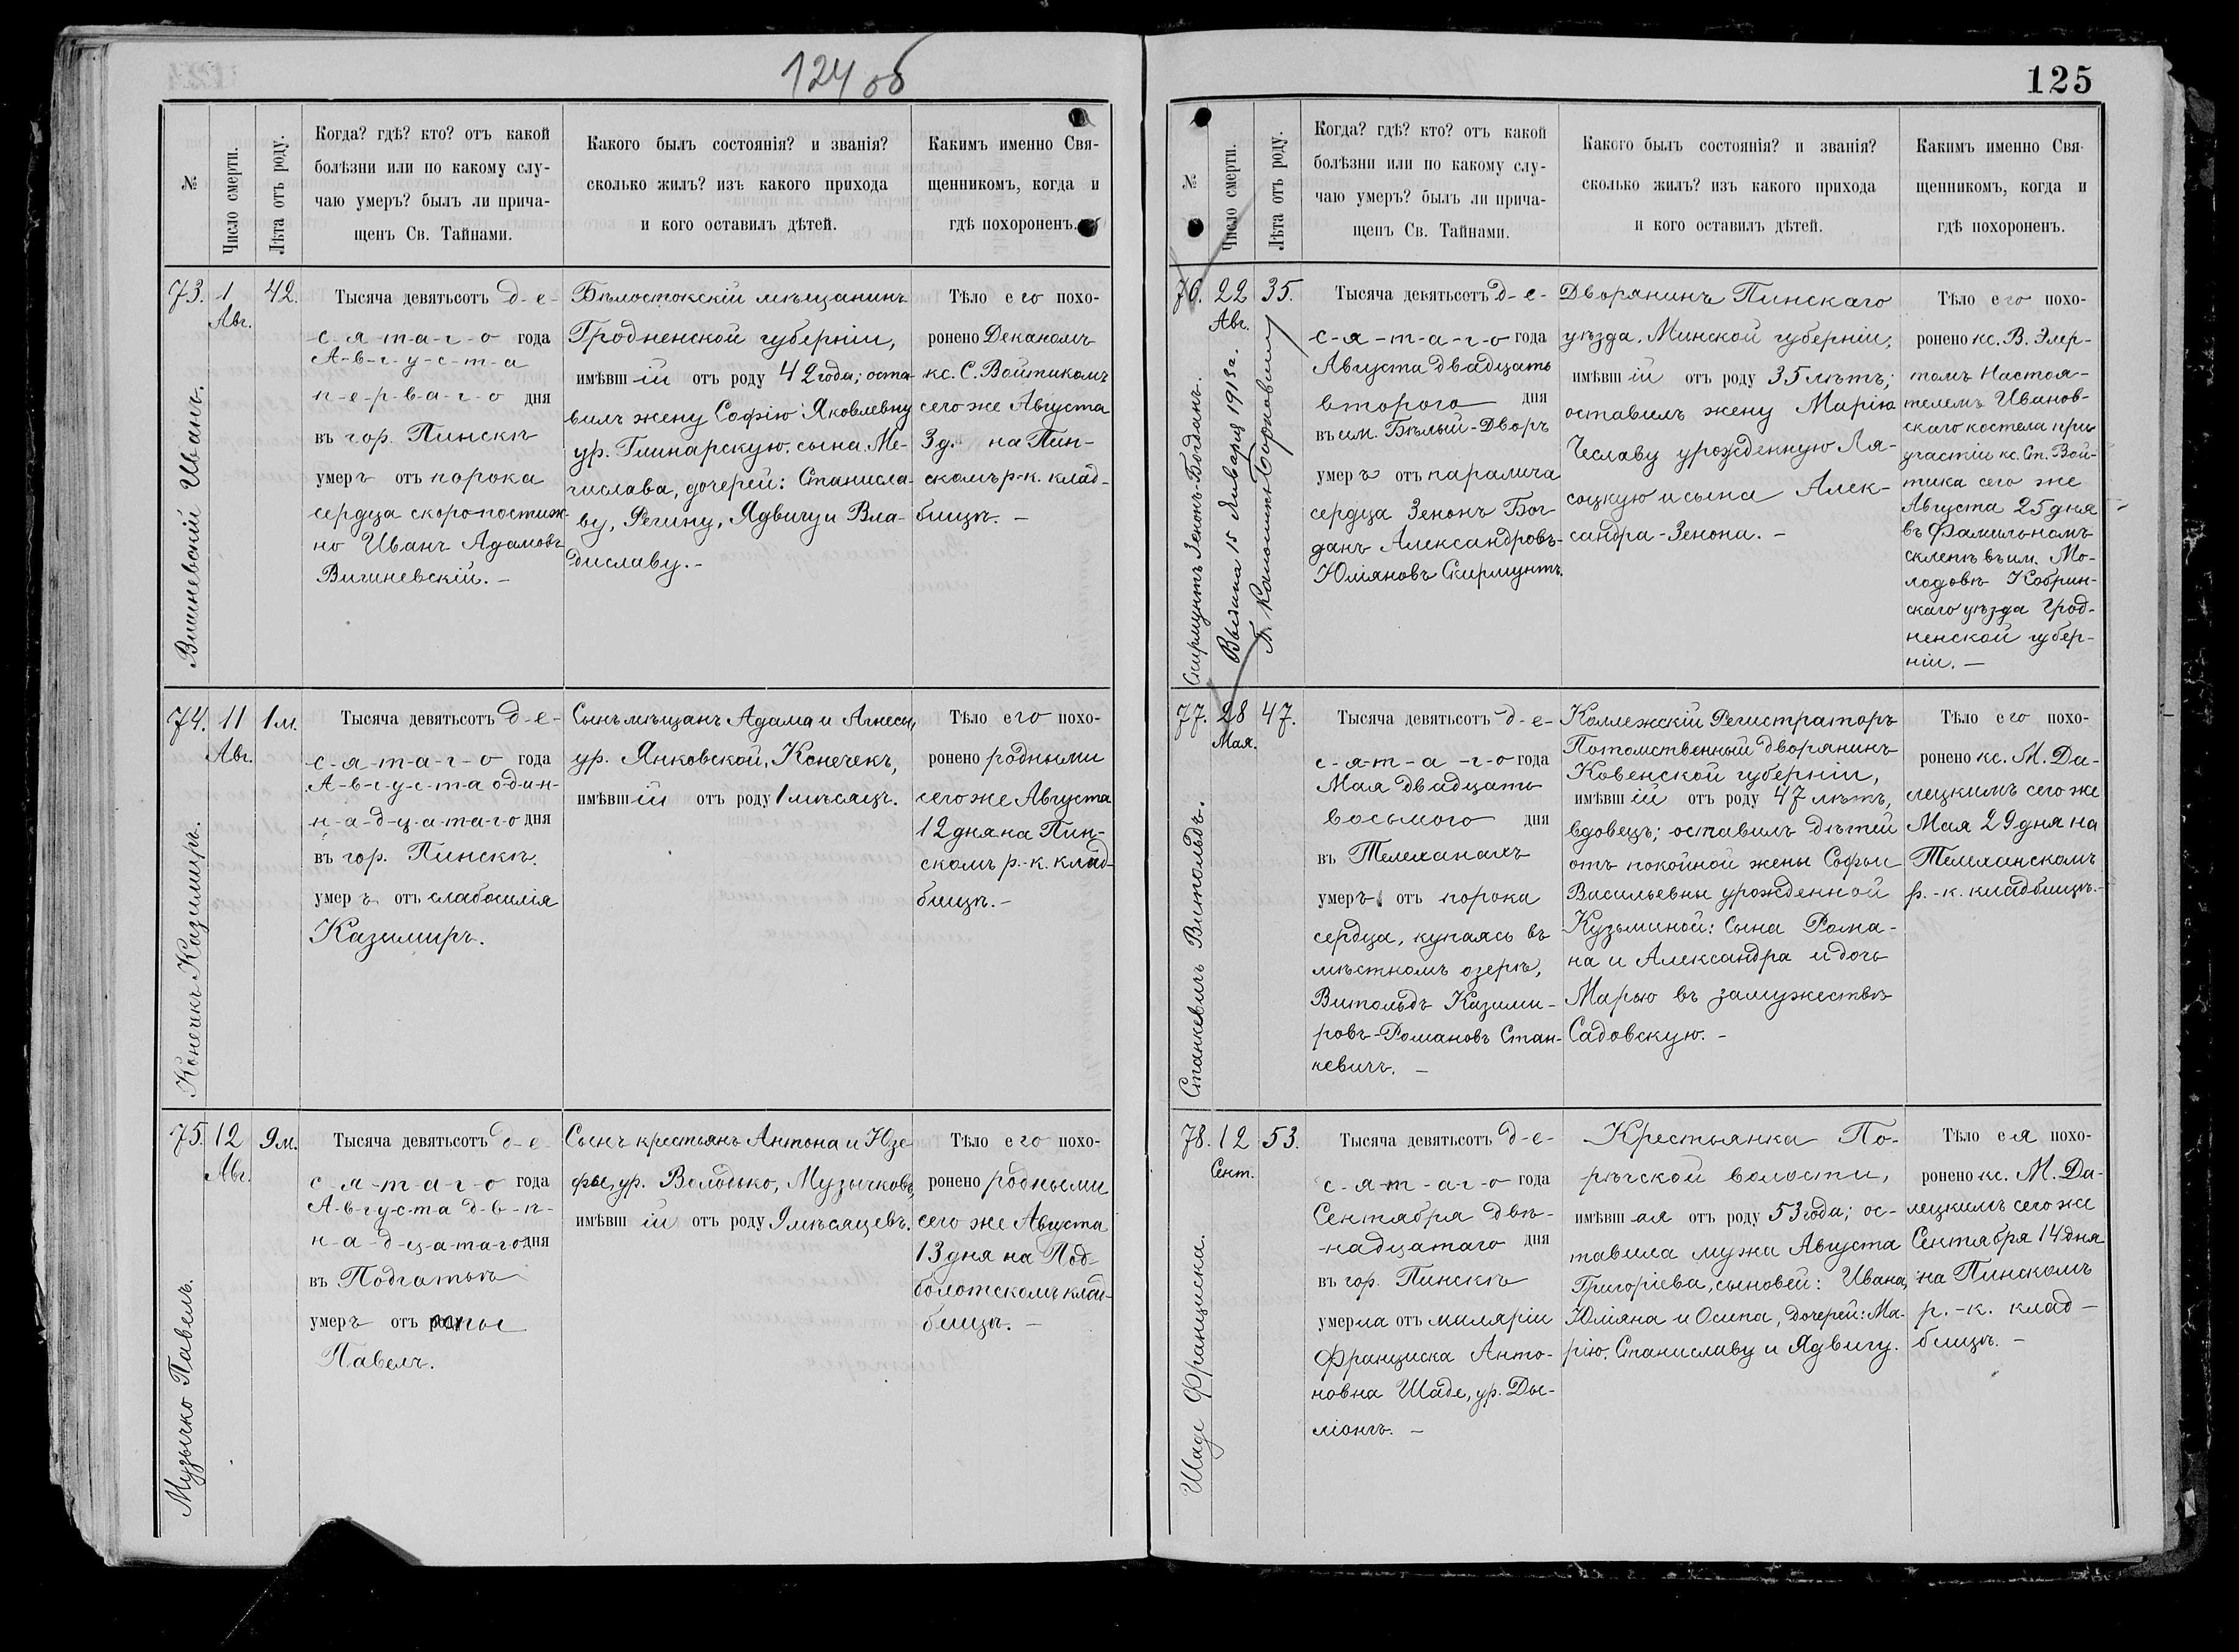 124 об
№
Число смерти.
Лѣта отъ роду.
Когда? гдѣ? кто? отъ какой
болѣзни или по какому слу-
чаю умеръ? былъ ли прича-
щенъ Св. Тайнами.
Какого былъ состоянія? и званія?
сколько жилъ? изъ какого прихода
и кого оставилъ дѣтей.
Какимъ именно Свя-
щенникомъ, когда и
гдѣ похороненъ.
73.
Вишневскій Иванъ.
1
Авг.
42.
Тысяча девятьсотъ д-е-
с-я-т-а-г-о года
А-в-г-у-с-т-а
п-е-р-в-а-г-о дня
въ гор. Пинскѣ
умеръ отъ порока
сердца скоропостиж-
но Иванъ Адамовъ
Вишневскій. —
Бѣлостокскій мѣщанинъ
Гродненской губерніи,
имѣвшій отъ роду 42 года; оста-
вилъ жену Софію Яковлевну
ур. Глинарскую. сына Ме-
числава, дочерей: Станисла-
ву, Регину, Ядвигу и Вла-
диславу. -
Тѣло его похо-
ронено Деканомъ
кс. С. Войтикомъ
сего же Августа
3 д. на Пин-
скомъ р-к. клад-
бищѣ. —
74.
Конечкъ Казимиръ.
11
Авг.
1 м.
Тысяча девятьсотъ д-е-
с-я-т-а-г-о года
А-в-г-у-с-т-а один-
н-а-д-ц-а-т-а-г-о дня
въ гор. Пинскѣ.
умеръ отъ слабосилія
Казимиръ.
Сынъ мѣщанъ Адама и Агнесы,
ур. Янковской, Конечекъ,
имѣвшій отъ роду 1 мѣсяцъ.
Тѣло его похо-
ронено родными
сего же Августа
12 дня на Пин-
скомъ р.-к. клад-
бищѣ. -
75.
Музычко Павелъ.
12
Авг.
9 м.
Тысяча девятьсотъ д-е
с-я-т-а-г-о года
А-в-г-у-с-т-а д-в-ѣ-
н-а-д-ц-а-т-а-г-о дня
въ Подгатьѣ
умеръ отъ оспы
Павелъ.
Сынъ крестьянъ Антона и Юзе-
фы, ур. Володько, Музычковъ,
имѣвшій отъ роду 9 мѣсяцевъ.
Тѣло его похо-
ронено родными
сего же Августа
13 дня на Под-
болотскомъ клад-
бищѣ. —
125
№
Число смерти.
Лѣта отъ роду.
Когда? гдѣ? кто? отъ какой
болѣзни или по какому слу-
чаю умеръ? былъ ли прича-
щенъ Св. Тайнами.
Какого былъ состоянія? и званія?
сколько жилъ? изъ какого прихода
и кого оставилъ дѣтей.
Какимъ именно Свя-
щенникомъ, когда и
гдѣ похороненъ.
76.
Скирмунтъ Зенонъ-Богданъ.
22
Авг.
Выдана 15 Января 1913 г.
35.
Тысяча девятьсотъ д-е-
с-я-т-а-г-о года
Августа двадцать
второго дня
въ им. Бѣлый-Дворъ
умеръ отъ паралича
сердца Зенонъ Бог-
данъ Александровъ-
Юліяновъ Скирмунтъ.
Дворянинъ Пинскаго
уѣзда, Минской губерніи,
имѣвшій отъ роду 35 лѣтъ;
оставилъ жену Марію
Чеславу урожденную Ля-
соцкую и сына Алек-
сандра-Зенона. -
Тѣло его похо-
ронено кс. В. Элер-
томъ Настоя-
телемъ Иванов-
скаго костела при
участіи кс. Ст. Вой-
тика сего же
Августа 25 дня
въ Фамильномъ
склепѣ въ им. Мо-
лодовѣ Кобрин-
скаго уѣзда Грод-
ненской губер-
ніи. —
77.
Станкевичъ Витольдъ.
28
Мая.
47.
Тысяча девятьсотъ д-е-
с-я-т-а-г-о года
Мая двадцать
восьмого дня
въ Телеханахъ
умеръ отъ порока
сердца, купаясь въ
мѣстномъ озерѣ,
Витольдъ Казими-
ровъ-Романовъ Стан-
кевичъ. —
Коллежскій Регистраторъ
Потомственный дворянинъ
Ковенской губерніи,
имѣвшій отъ роду 47 лѣтъ,
вдовецъ; оставилъ дѣтей
отъ покойной жены Софьи
Васильевны урожденной
Кузьминой: Сына Рома-
на и Александра и дочь
Марью въ замужествѣ
Садовскую. -
Тѣло его похо-
ронено кс. М. Да-
лецкимъ сего же
Мая 29 дня на
Телеханскомъ
р.-к. кладбищѣ. -
78.
Шаде Франциска.
12
Сент.
53.
Тысяча девятьсотъ д-е-
с-я-т-а-г-о года
Сентября двѣ-
надцатаго дня
въ гор. Пинскѣ
умерла отъ маляріи
Франциска Анто-
новна Шаде, ур. Ды-
ліонгъ. —
Крестьянка По-
рѣчской волости,
имѣвшая отъ роду 53 года; ос-
тавила мужа Августа
Григоріева, сыновей: Ивана,
Юліяна и Осипа, дочерей: Ма-
рію, Станиславу и Ядвигу.
Тѣло ея похо-
ронено кс. М. Да-
лецкимъ сего же
Сентября 14 дня
на Пинскомъ
р.-к. клад-
бищѣ. -